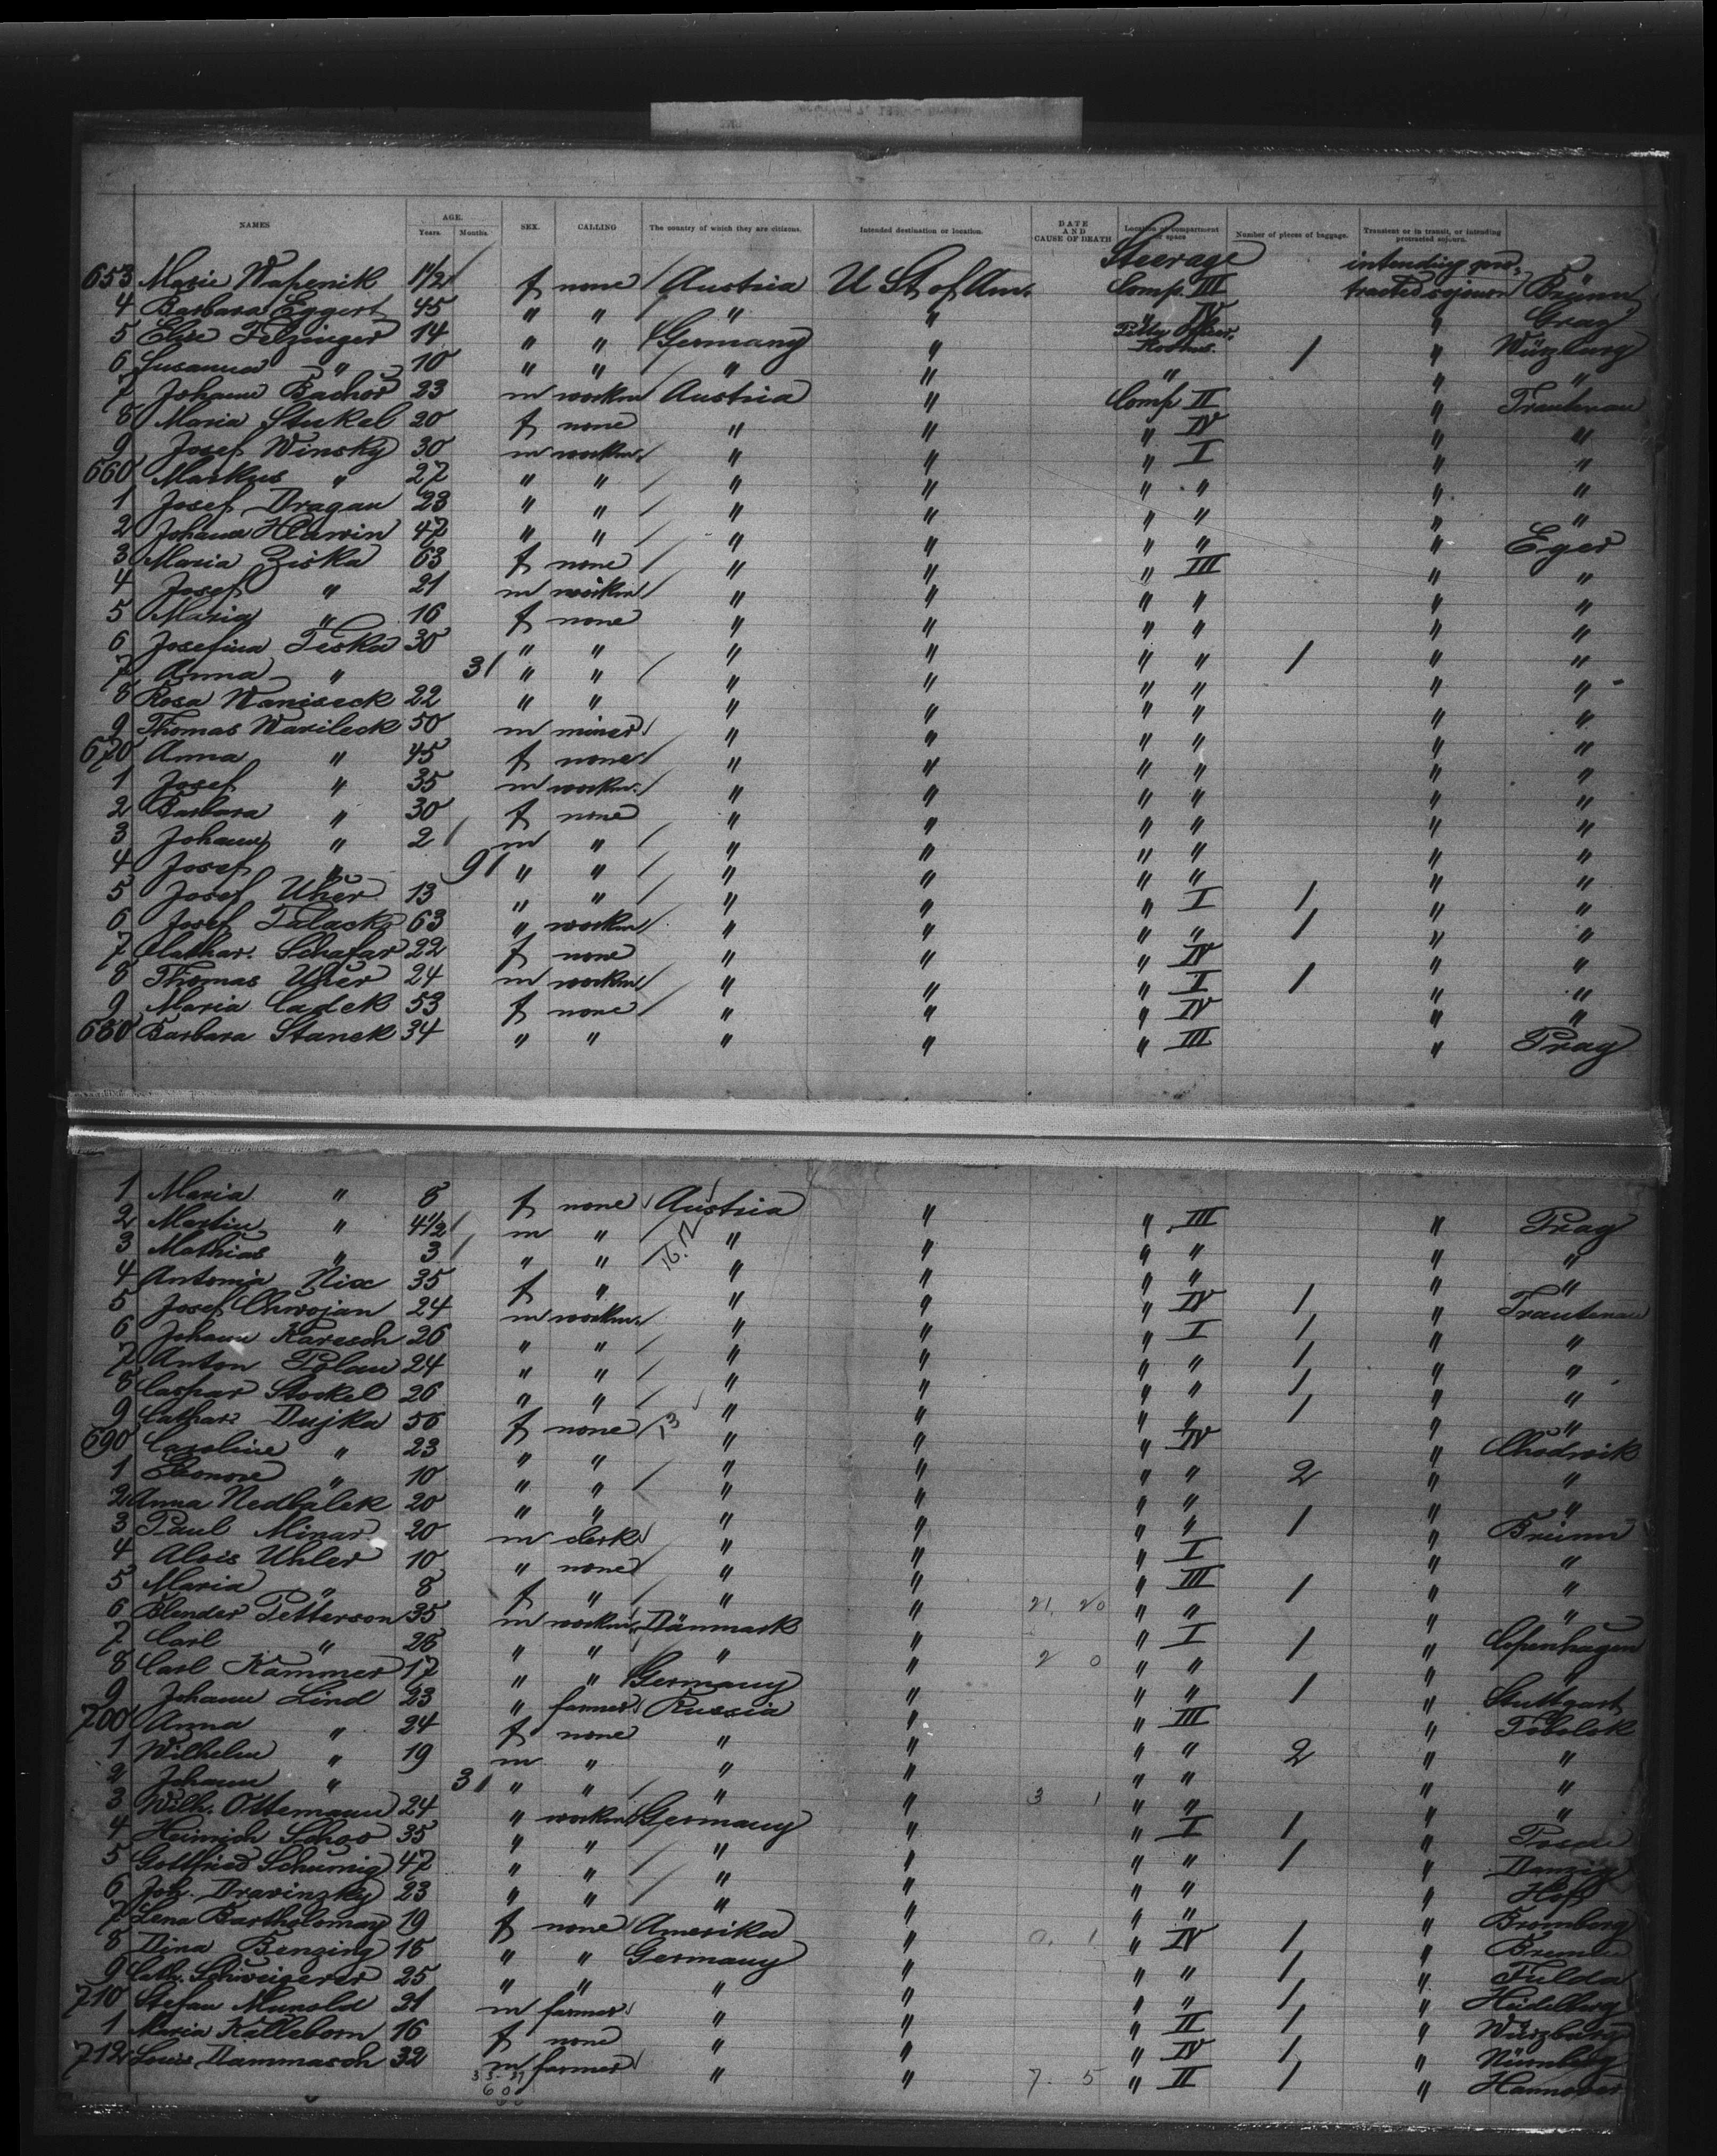 NAMES AGE. Years. Months. SEX. CALLING The country of which they are citizens. Intended destination or location. DATE AND CAUSE OF DEATH Location of compartment or space Number of pieces of baggage. Transient or in transit, or intending protracted sojourn.
Steerage intending pro-
653 Marie Wapenik 1 1/2 f none Austria U St of Am. Comp. III tracted sojourn Brünn
4 Barbara Eggert 45 " " " " " IV "
5 Elise Felzinger 14 " " Germany " Petty Officer. Rooms. 1 " Würzburg
6 Susanna " 10 " " " " " " "
7 Johann Bachor 23 m workm Austria " Comp II " Trautenau
8 Maria Stukel 20 f none " " " IV " "
9 Josef Winsky 30 m workm. " " " I " "
660 Markus " 27 " " " " " " " "
1 Josef Dragan 23 " " " " " " " "
2 Johann Hlawin 47 " " " " " " " Eger
3 Maria Ziska 63 f none " " " III " "
4 Josef " 21 m workm " " " " " "
5 Maria " 16 f none " " " " " "
6 Josefina Teska 30 " " " " " " 1 " "
7 Anna " 3 " " " " " " " "
8 Rosa Waniseck 22 " " " " " " " "
9 Thomas Wasileck 50 m miner " " " " " "
670 Anna " 45 f none " " " " " "
1 Josef " 35 m workm. " " " " " "
2 Barbara " 30 f none " " " " " "
3 Johann " 2 m " " " " " " "
4 Josef " 9 " " " " " " " "
5 Josef Uher 13 " " " " " I 1 " "
6 Josef 63 " workm " " " " 1 " "
7 Cathar. Schafar 22 f none " " " IV " "
8 Thomas Uher 24 m workm " " " I 1 " "
9 Maria Cadek 53 f none " " " IV " "
680 Barbara Stanek 34 " " " " " III " Prag
1 Maria " 8 f none Austria " " III " Prag
2 Martin " 4 1/2 m " " " " " " "
3 Mathias " 3 " " " " " " " "
4 Antonia Nix 35 f " " " " IV 1 " Trautenau
5 Josef Chwojan 24 m workm. " " " I 1 " "
6 Johann Karesch 26 " " " " " " 1 " "
7 Anton Polan 24 " " " " " " 1 " "
8 Caspar Stockel 26 " " " " " " 1 " "
9 Cathar. Dujka 56 f none 13 " " " IV " Chodwik
690 Caroline " 23 " " " " " " 2 " "
1 Eleonore " 10 " " " " " " " "
2 Anna Nedbalek 20 " " " " " " 1 " Brünn
3 Paul Minar 20 m clerk " " " I " "
4 Alois Uhler 10 " none " " " III 1 " "
5 Maria " 8 f " " " 21. 20 " " " "
6 Petterson 35 m workm. Dänmark " " I 1 " Copenhagen
7 Carl " 28 " " " " 2 0 " " " "
8 Carl Kammer 17 " " Germany " " " 1 " Stuttgart
9 Johann Lind 23 " farmer Russia " " III " Tobolsk
700 Anna " 24 f none " " " " 2 " "
1 Wilhelm " 19 m " " " " " " "
2 Johann " 3 " " " " 3 1 " " " "
3 Wilh. Ottemann 24 " workm Germany " " I 1 " Posen
4 Heinrich Schoo 35 " " " " " " 1 " Danzig
5 Gottfried Schumig 47 " " " " " " " Hoff
6 Joh. Dravinzky 23 " " " " " " " Bromberg
7 Lena Bartholomay 19 f none Amerika " 0. 1 " IV 1 " Bremen
8 Dina Benzing 18 " " Germany " " " 1 " Fulda
9 Cath. Schweigerer 25 " " " " " " 1 " Heidelberg
710 Stefan Munold 21 m farmer " " " II 1 " Würzburg
1 Maria Kalleborn 16 f none " " " IV 1 " Nürnberg
712 Louis Dammasch 32 m farmer " " 7. 5 " II 1 " Hannover